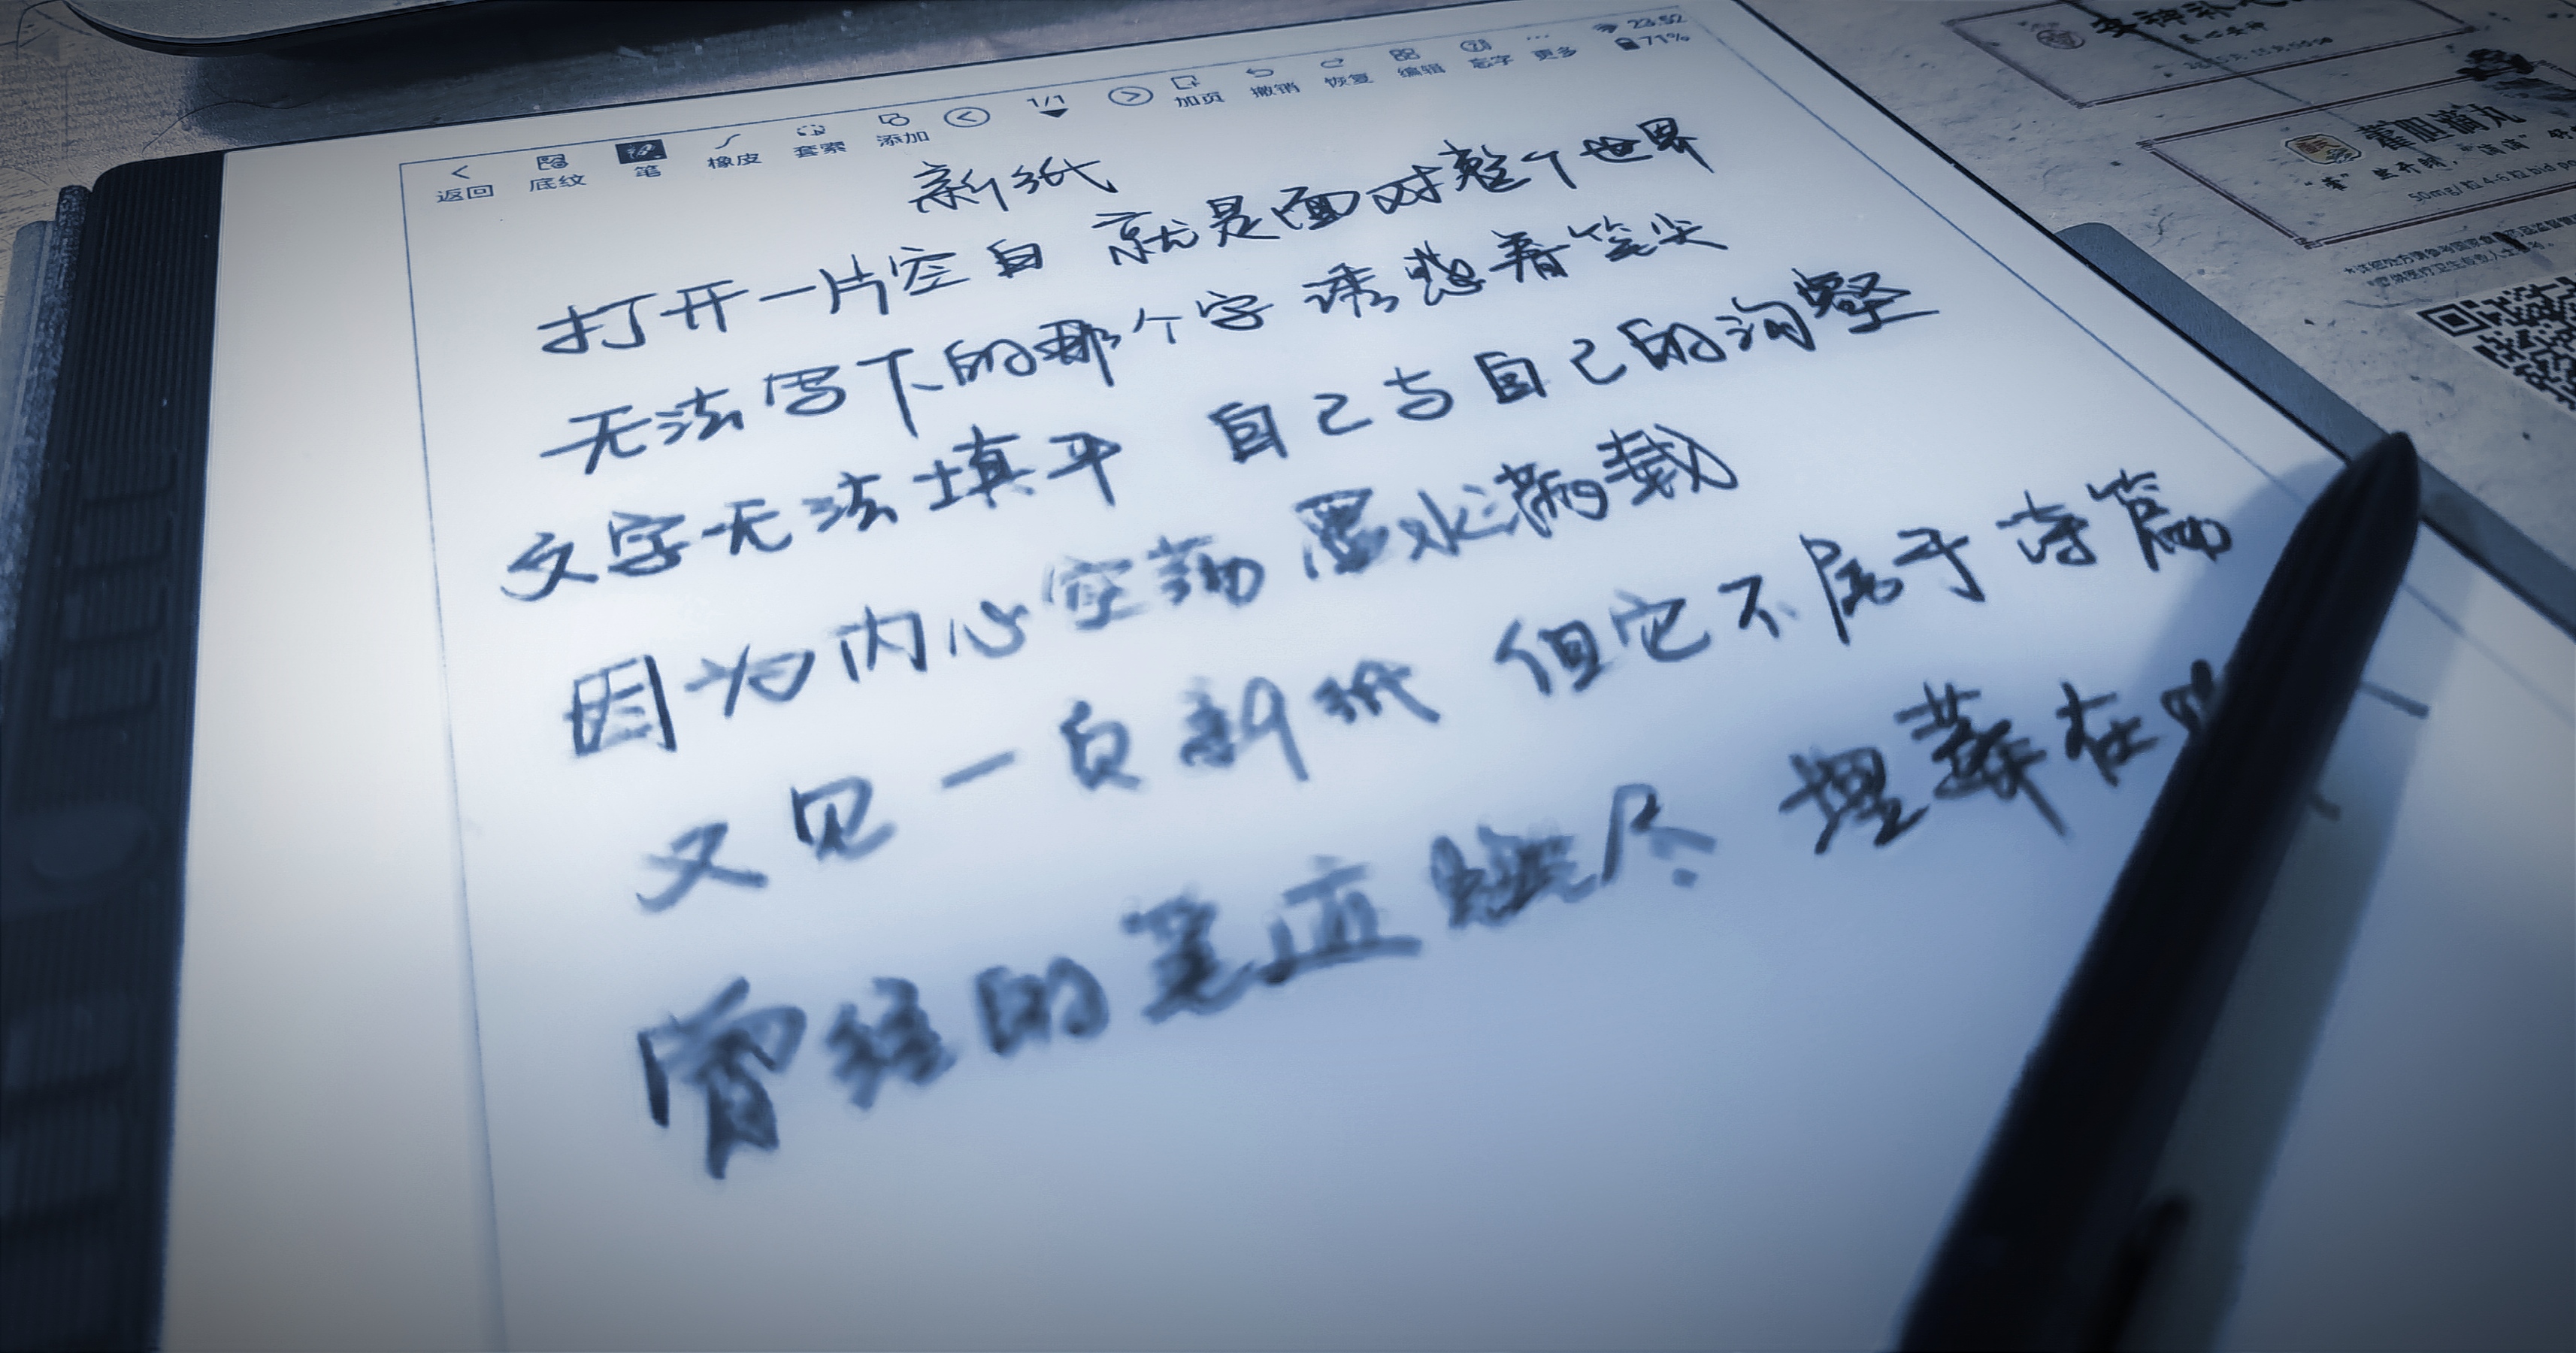 23:52
71%
返回 底纹 笔 橡皮 套索 添加 1/1 加页 撤销 恢复 编辑 忘字 更多
新纸
打开一片空白 就是面对整个世界
无法写下的那个字 诱惑着笔尖
文字无法填平 自己与自己的沟壑
因为内心空荡 墨水满载
又见一页新纸 但它不属于诗篇
曾经的笔迹燃尽 埋葬在
藿胆滴丸
50mg/粒 4-6粒 bid po